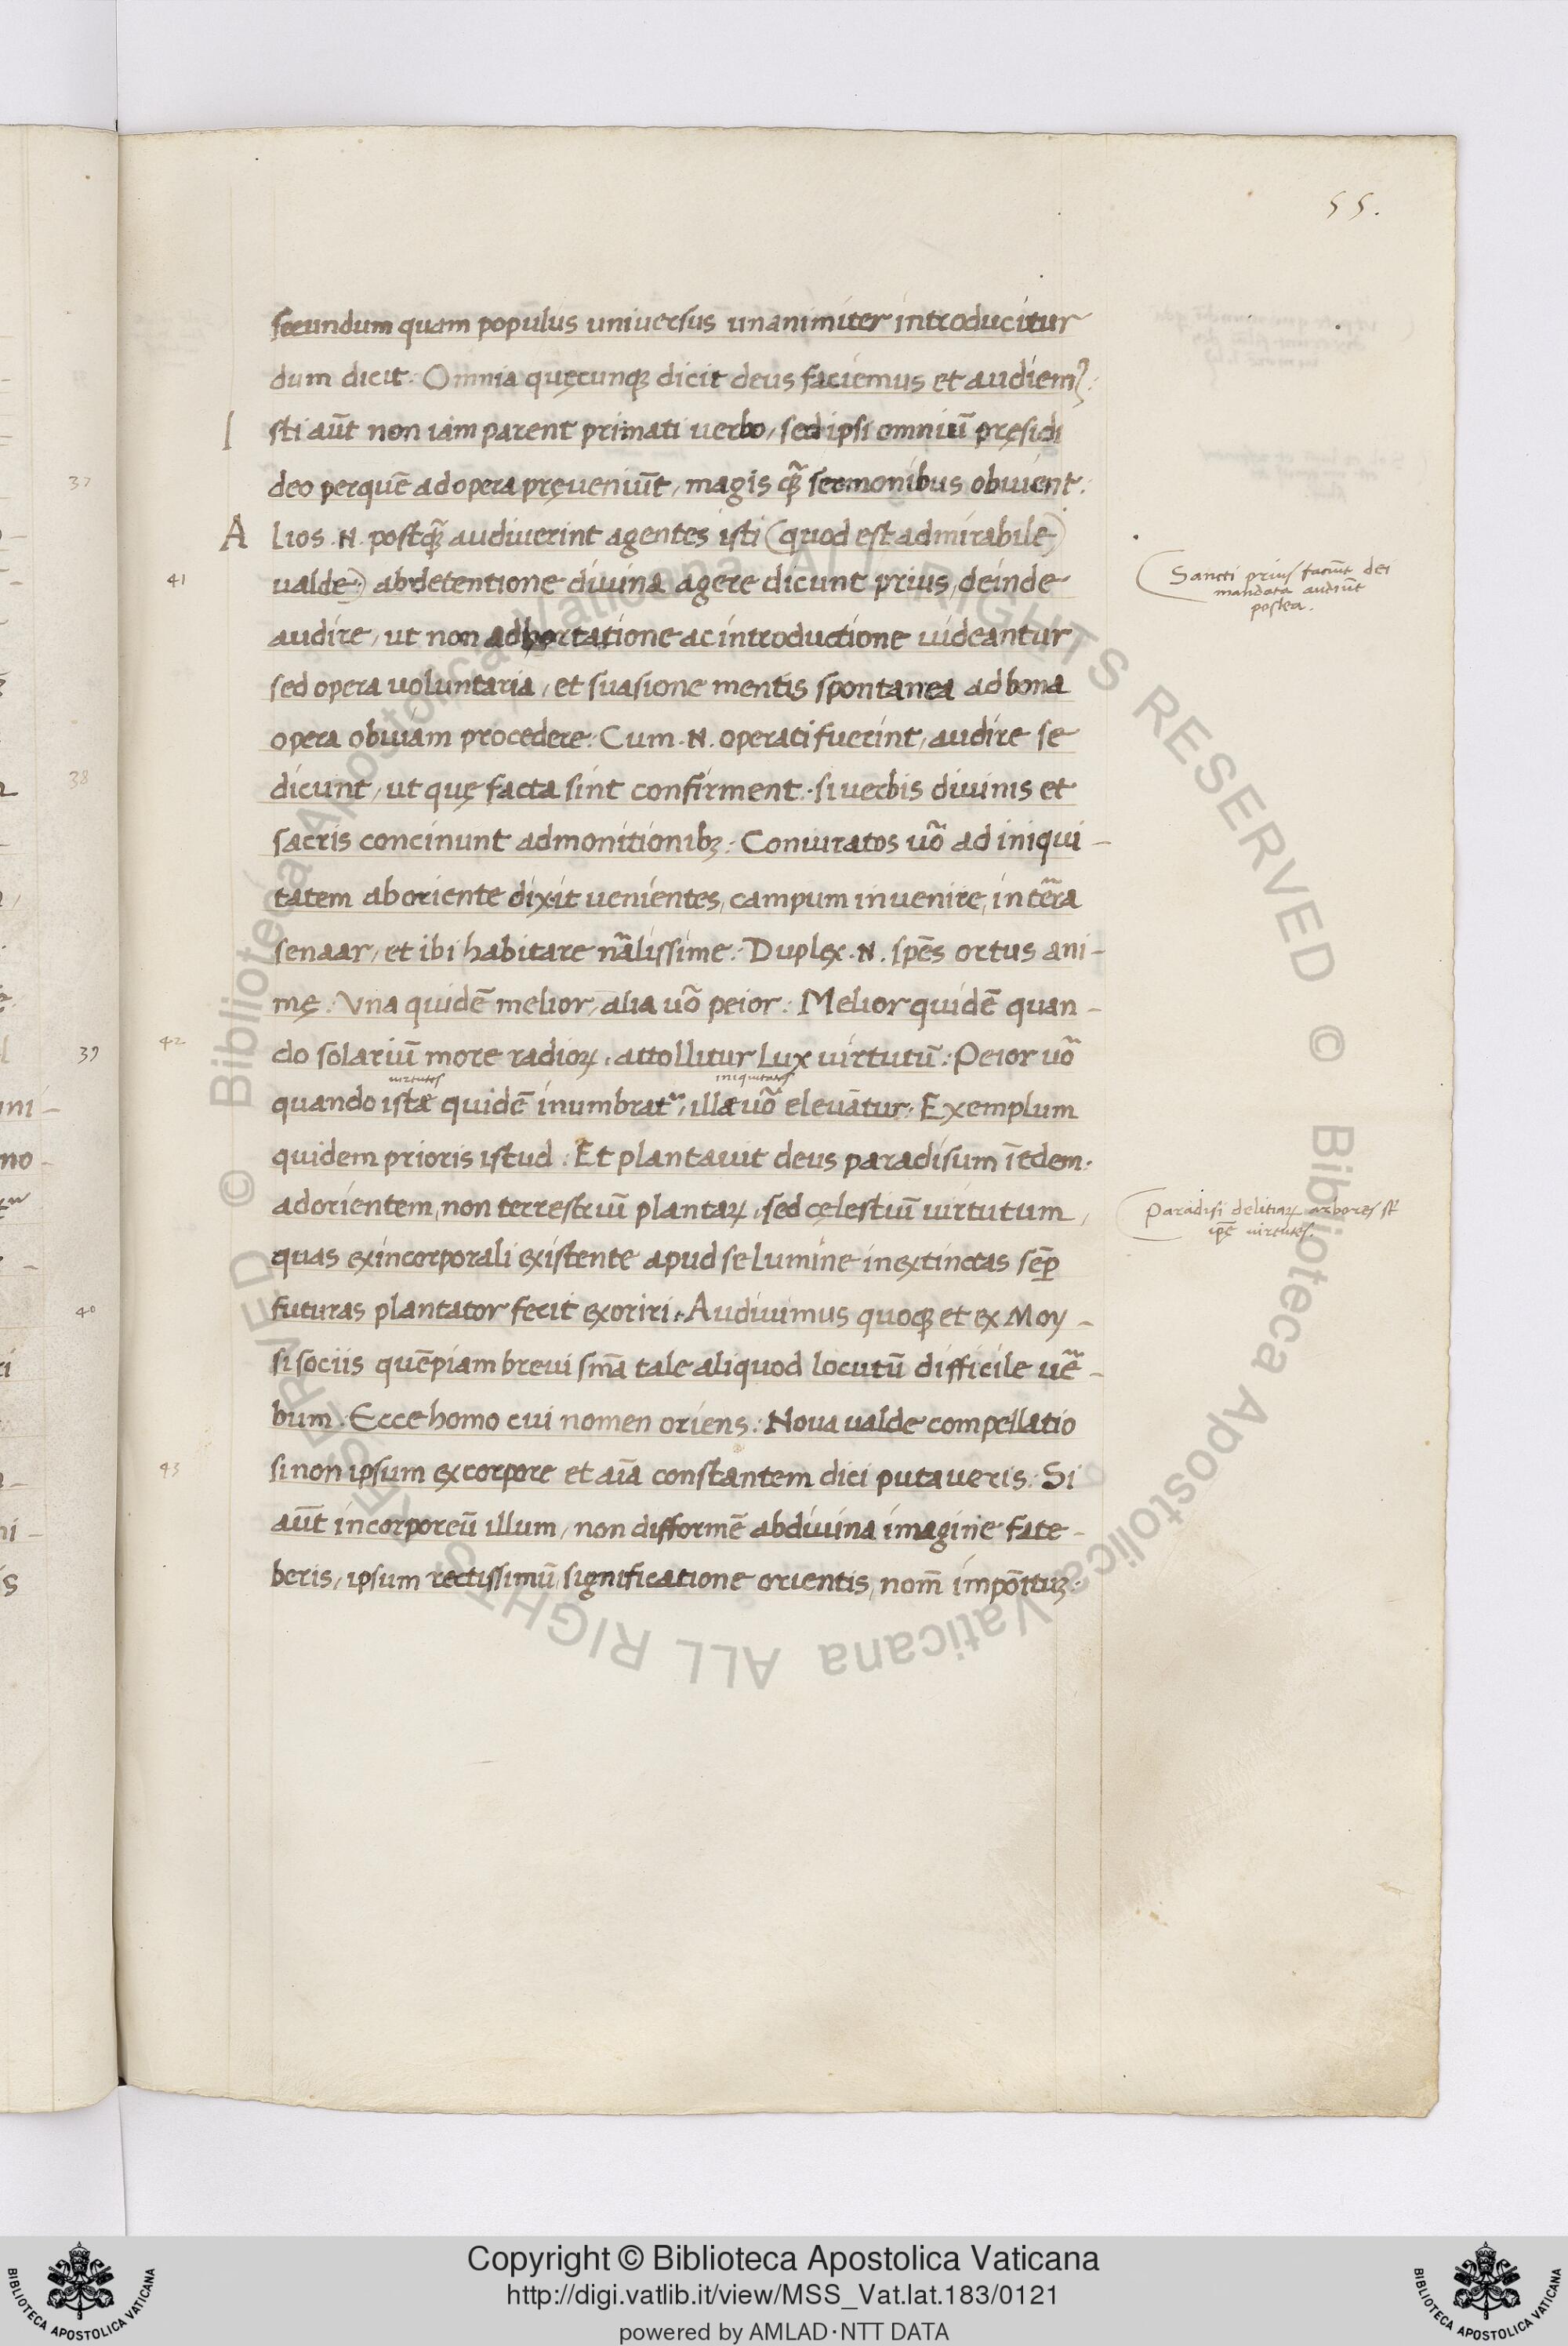 55.
secundum quam populus universus unanimiter introducitur
dum dicit. Omnia quęcunqꝫ dicit deus faciemus et audiemꝰ:
I sti aūt non iam parent primati verbo, sed ipsi omniū pręsidi
deo perquē ad opera pręveniūt, magis qꝫ̃ sermonibus obvient:
A lios .N. postqꝫ̃ audiverint agentes isti (quod est admirabile)
valde) ab detentione divina agere dicunt prius, deinde
audire, ut non adhortatione ac introductione videantur
sed opera voluntaria, et suasione mentis spontanea ad bona
opera obviam procedere: Cum .N. operati fuerint, audire se
dicunt, ut quę facta sint confirment: si verbis divinis et
sacris concinunt admonitionibꝫ: Coniuratos uõ ad iniqui-
tatem ab oriente dixit venientes, campum invenire, in tẽra
senaar, et ibi habitare nãlissime: Duplex .N. spēs ortus ani-
mę: Vna quidē melior, alia uõ peior: Melior quidē quan-
do solariū more radioꝝ, attollitur Lux virtutū: Peior uõ
virtutes iniquitates
quando istæ quidē inumbrat᷑, illæ uõ elevātur: Exemplum
quidem prioris istud: Et plantavit deus paradisum ī edem.
ad orientem, non terrestriū plantaꝝ, sed cęlestiū virtutum,
quas ex incorporali existente apud se Lumine inextinctas semꝑ
futuras plantator fecit exoriri: Audivimus quoqꝫ et ex Moy-
si sociis quēpiam brevi smā tale aliquod locutū difficile vẽ-
bum: Ecce homo cui nomen oriens: Nova valde compellatio
si non ipsum ex corpore et aīa constantem dici putaveris: Si
aūt incorporeū illum, non difformē ab divina imagine fate-
beris, ipsum rectissimū, significatione orientis, nom̄ impōituꝫ.
41
42
43
37
38
39
40
Sancti prius faciūt dei
mandata audiūt
postea.
Paradisi delitiaꝝ arbores st̄
ipē virtutes.
Copyright © Biblioteca Apostolica Vaticana
http://digi.vatlib.it/view/MSS_Vat.lat.183/0121
powered by AMLAD·NTT DATA
© Biblioteca Apostolica Vaticana ALL RIGHTS RESERVED © Biblioteca Apostolica Vaticana ALL RIGHTS RESERVED
BIBLIOTECA APOSTOLICA VATICANA
BIBLIOTECA APOSTOLICA VATICANA